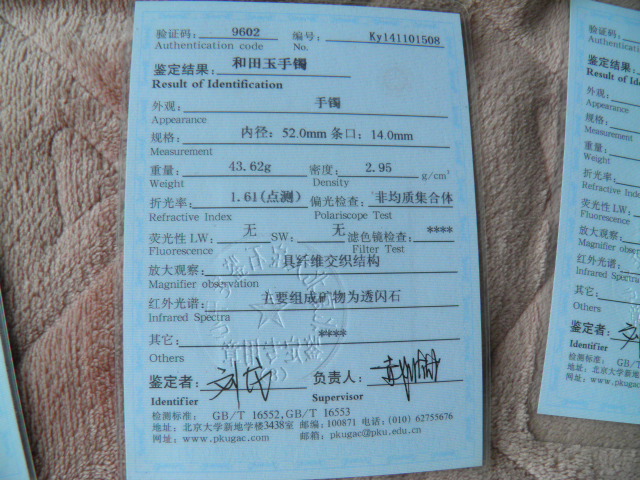 验证码： 9602 编号： Ky141101508
Authentication code No.
鉴定结果： 和田玉手镯
Result of Identification
外观： 手镯
Appearance
规格： 内径：52.0mm 条口：14.0mm
Measurement
重量： 43.62g 密度： 2.95 g/cm³
Weight Density
折光率： 1.61(点测) 偏光检查： 非均质集合体
Refractive Index Polariscope Test
荧光性 LW： 无 SW： 无 滤色镜检查： ****
Fluorescence Filter Test
放大观察： 具纤维交织结构
Magnifier observation
红外光谱： 主要组成矿物为透闪石
Infrared Spectra
其它： ****
Others
鉴定者： 负责人：
Identifier Supervisor
检测标准： GB/T 16552,GB/T 16553
地址：北京大学新地学楼3438室 邮编：100871 电话：(010) 62755676
网址：www.pkugac.com 邮箱：pkugac@pku.edu.cn
验证码：
Authentication
鉴定结果：
Result of
外观：
Appearance
规格：
Measurement
重量：
Weight
折光率：
Refractive Index
荧光性 LW：
Fluorescence
放大观察：
Magnifier
红外光谱：
Infrared Spectra
其它：
Others
鉴定者：
Identifier
检测标准： GB/T
地址：北京大学新地
网址：www.pku